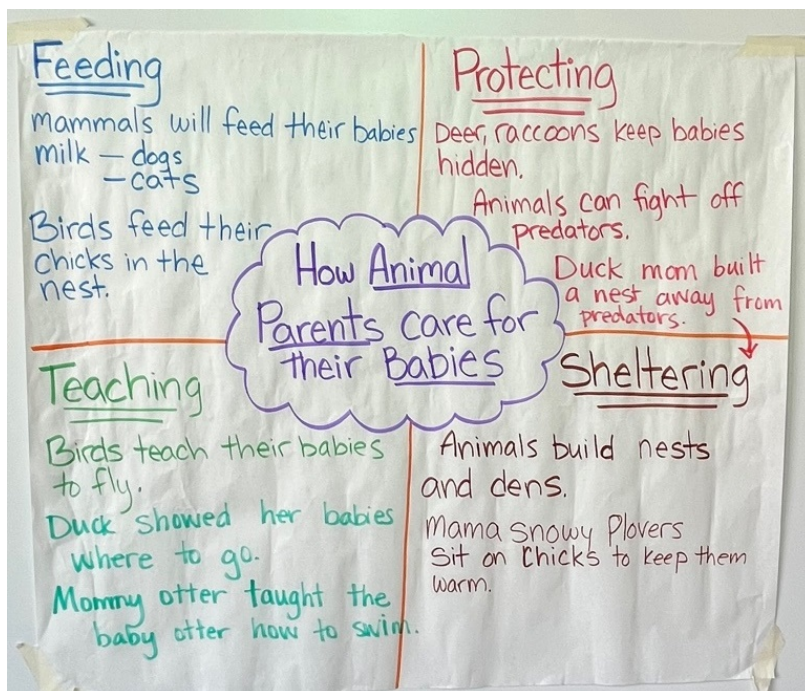 Feeding
mammals will feed their babies
milk – dogs
– cats
Birds feed their
chicks in the
nest.
Protecting
Deer, raccoons keep babies
hidden.
Animals can fight off
predators.
Duck mom built
a nest away from
predators.
How Animal
Parents care for
their Babies
Teaching
Birds teach their babies
to fly.
Duck showed her babies
where to go.
Mommy otter taught the
baby otter how to swim.
Sheltering
Animals build nests
and dens.
Mama Snowy Plovers
Sit on Chicks to keep them
warm.